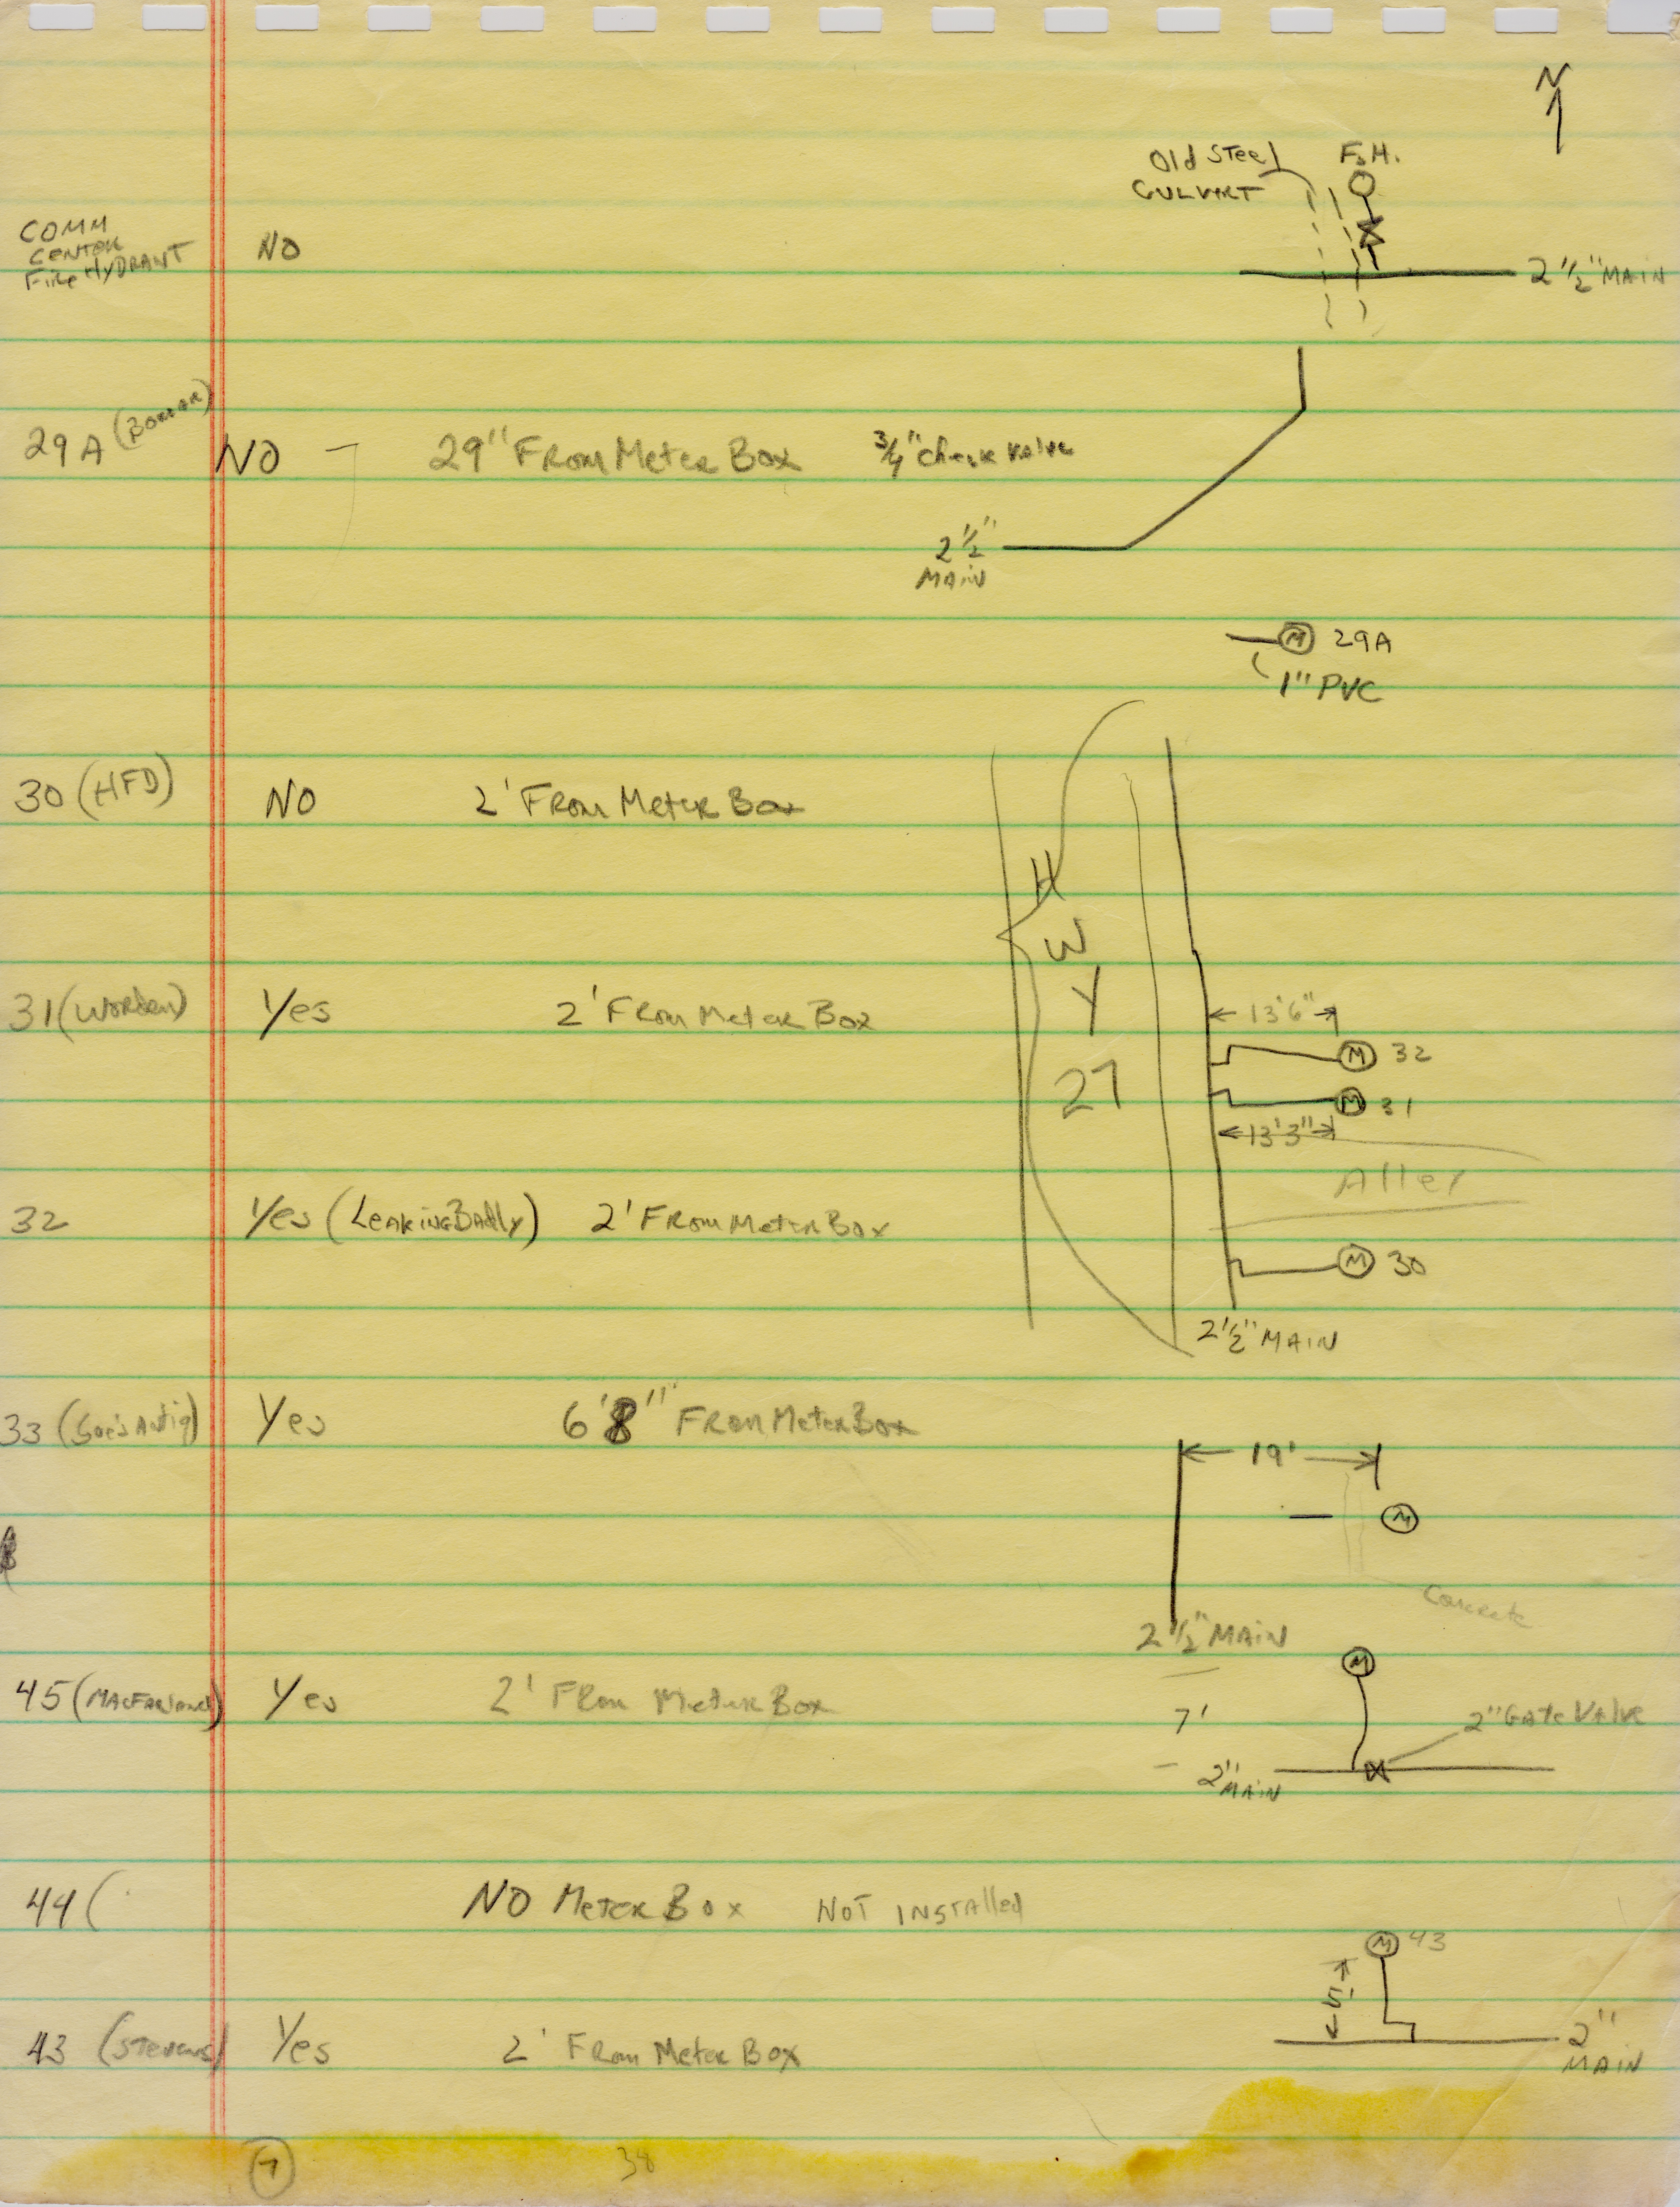 N
Old Steel F.H.
CULVART
COMM
CENTER
Fire HYDRANT NO
2 1/2" MAIN
29A NO 29" FROM Meter Box 3/4" Check Valve
2 1/2"
MAIN
M 29A
1" PVC
30 (HFD) NO 2' FROM Meter Box
HWY 27
31 (Worden) Yes 2' FROM Meter Box
13'6"
M 32
M 31
13'3"
Alley
32 Yes (Leaking Badly) 2' FROM Meter Box
M 30
2 1/2" MAIN
33 Yes 6'8" FROM Meter Box
19'
M
Concrete
2 1/2" MAIN
M
45 (MacFarland) Yes 2' FROM Meter Box
7' 2" Gate Valve
2" MAIN
44 ( NO Meter Box NOT INSTAlled
M 43
5'
43 (Stevens) Yes 2' FROM Meter Box
2"
MAIN
7 38